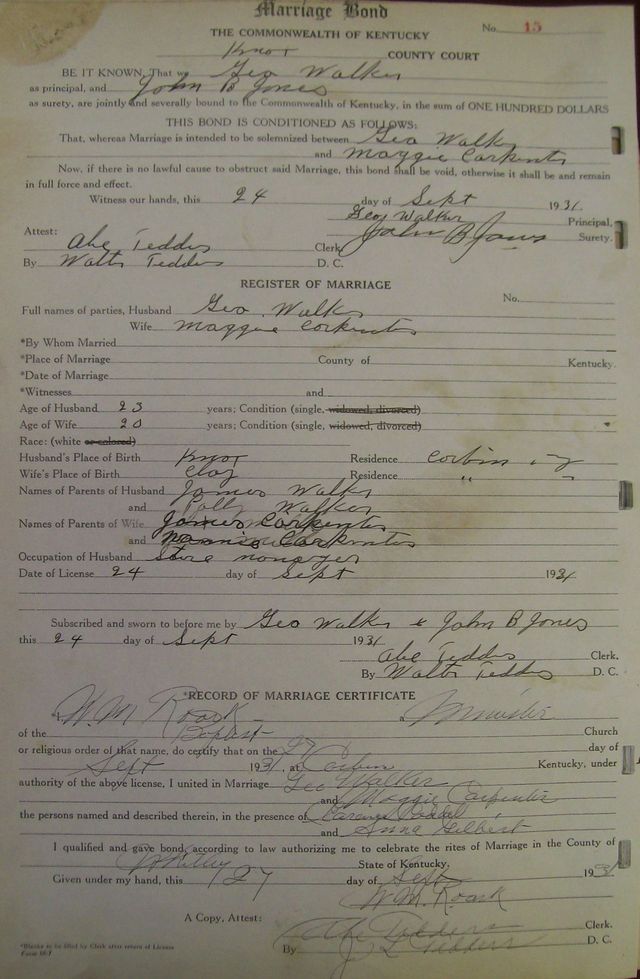 Marriage Bond
No. 15
THE COMMONWEALTH OF KENTUCKY
Knox COUNTY COURT
BE IT KNOWN, That we Geo Walker
as principal, and John B Jones
as surety, are jointly and severally bound to the Commonwealth of Kentucky, in the sum of ONE HUNDRED DOLLARS
THIS BOND IS CONDITIONED AS FOLLOWS:
That, whereas Marriage is intended to be solemnized between Geo Walker
and Maggie Carpenter
Now, if there is no lawful cause to obstruct said Marriage, this bond shall be void, otherwise it shall be and remain
in full force and effect.
Witness our hands, this 24 day of Sept 1931.
Geo Walker Principal,
John B Jones Surety.
Attest:
Abe Tedders Clerk
By Walter Tedders D. C.
REGISTER OF MARRIAGE
No.
Full names of parties, Husband Geo. Walker
Wife Maggie Carpenter
*By Whom Married
*Place of Marriage County of Kentucky.
*Date of Marriage
*Witnesses and
Age of Husband 23 years; Condition (single, widowed, divorced)
Age of Wife 20 years; Condition (single, widowed, divorced)
Race: (white or colored)
Husband's Place of Birth Knox Residence Corbin Ky
Wife's Place of Birth Clay Residence " "
Names of Parents of Husband James Walker
and Polly Walker
Names of Parents of Wife James Carpenter
and Carpenter
Occupation of Husband Store manager
Date of License 24 day of Sept 1931
Subscribed and sworn to before me by Geo Walker & John B Jones
this 24 day of Sept 1931
Abe Tedders Clerk.
By Walter Tedders D. C.
*RECORD OF MARRIAGE CERTIFICATE
I W. M. Roark Minister
of the Baptist Church
or religious order of that name, do certify that on the 27 day of
Sept 1931, at Corbin Kentucky, under
authority of the above license, I united in Marriage Geo Walker
and Maggie Carpenter
the persons named and described therein, in the presence of Clarence
and Anna Gilbert
I qualified and gave bond, according to law authorizing me to celebrate the rites of Marriage in the County of
Whitley State of Kentucky.
Given under my hand, this 27 day of Sept 1931
W. M. Roark
A Copy, Attest: Abe Tedders Clerk.
By Tedders D. C.
*Blanks to be filled by Clerk after return of License